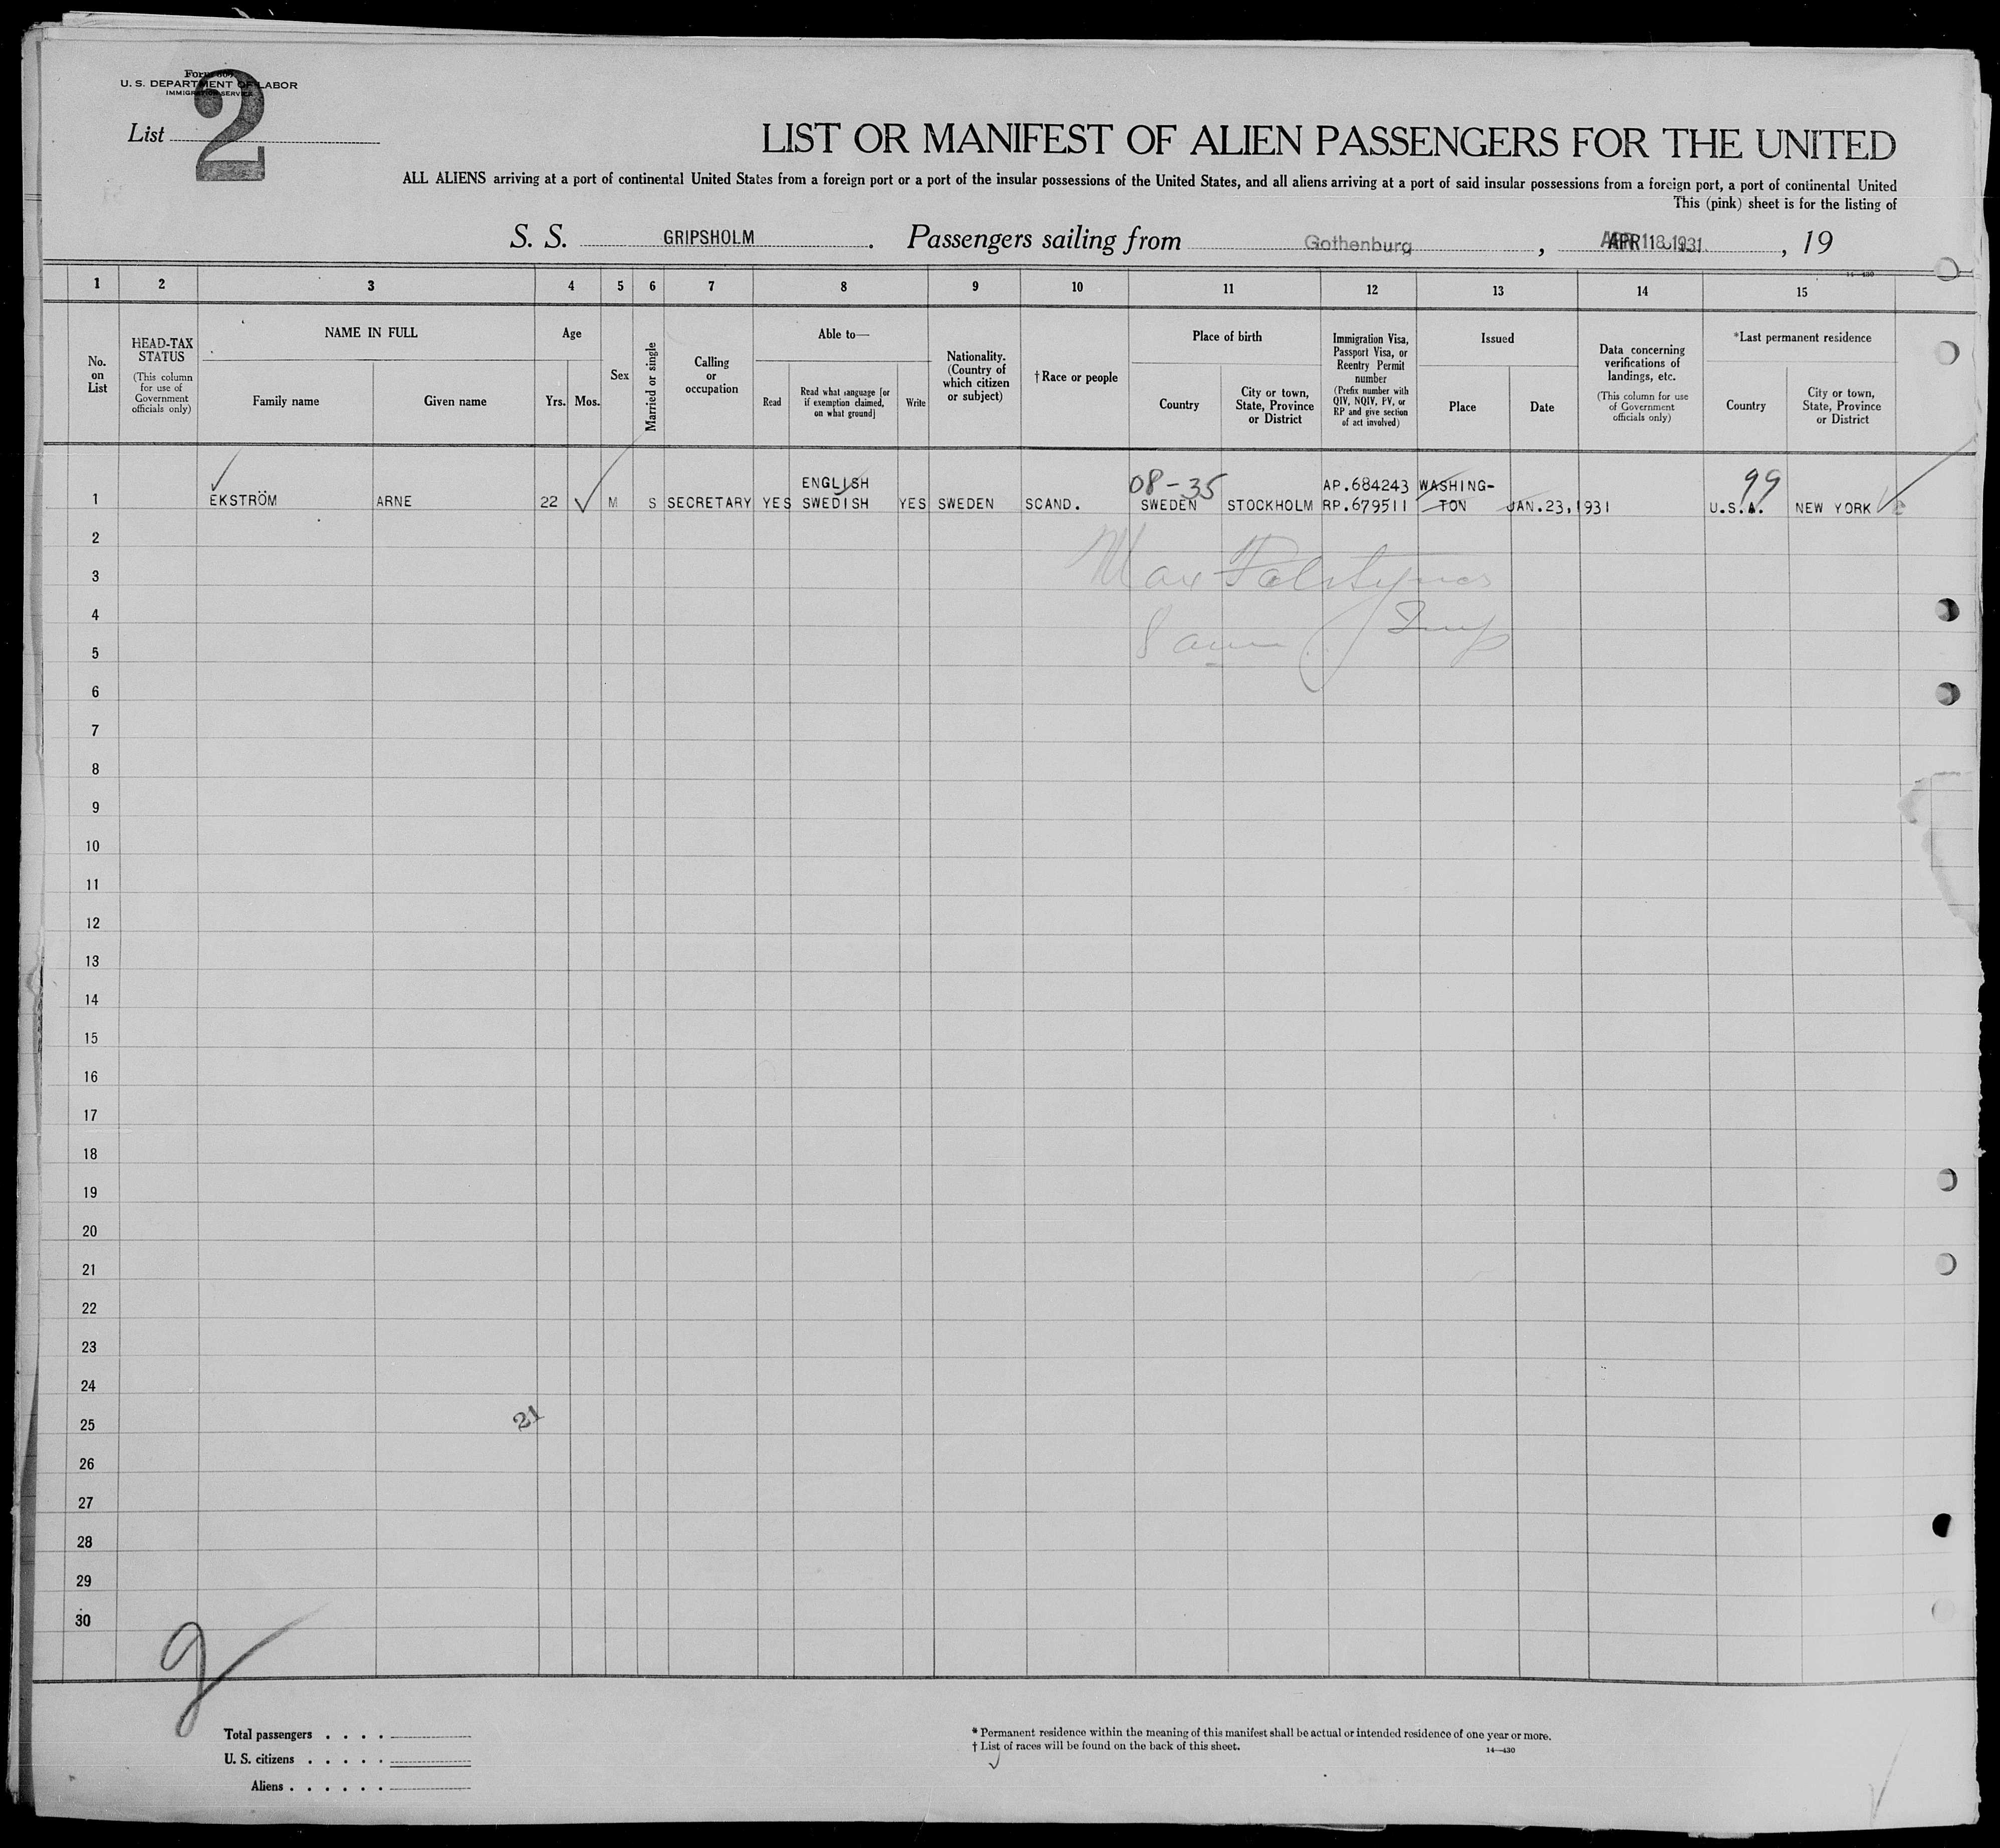 Form 
U. S. DEPARTMENT OF LABOR
IMMIGRATION SERVICE
List 2
LIST OR MANIFEST OF ALIEN PASSENGERS FOR THE UNITED
ALL ALIENS arriving at a port of continental United States from a foreign port or a port of the insular possessions of the United States, and all aliens arriving at a port of said insular possessions from a foreign port, a port of continental United
This (pink) sheet is for the listing of
S. S. GRIPSHOLM. Passengers sailing from Gothenburg, APR 18 1931, 19
14—430
1 2 3 4 5 6 7 8 9 10 11 12 13 14 15
No. on List
HEAD-TAX STATUS
(This column for use of Government officials only)
NAME IN FULL
Family name
Given name
Age
Yrs.
Mos.
Sex
Married or single
Calling or occupation
Able to—
Read
Read what language [or if exemption claimed, on what ground]
Write
Nationality. (Country of which citizen or subject)
† Race or people
Place of birth
Country
City or town, State, Province or District
Immigration Visa, Passport Visa, or Reentry Permit number
(Prefix number with QIV, NQIV, PV, or RP and give section of act involved)
Issued
Place
Date
Data concerning verifications of landings, etc.
(This column for use of Government officials only)
*Last permanent residence
Country
City or town, State, Province or District
ENGLISH 08-35 AP.684243 WASHING- 99
1 EKSTRÖM ARNE 22 M S SECRETARY YES SWEDISH YES SWEDEN SCAND. SWEDEN STOCKHOLM RP.679511 TON JAN.23,1931 U.S.A. NEW YORK
2
3
4
5
6
7
8
9
10
11
12
13
14
15
16
17
18
19
20
21
22
23
24
21
25
26
27
28
29
30
Total passengers . . . .
U. S. citizens . . . . .
Aliens . . . . . .
* Permanent residence within the meaning of this manifest shall be actual or intended residence of one year or more.
† List of races will be found on the back of this sheet.
14—430